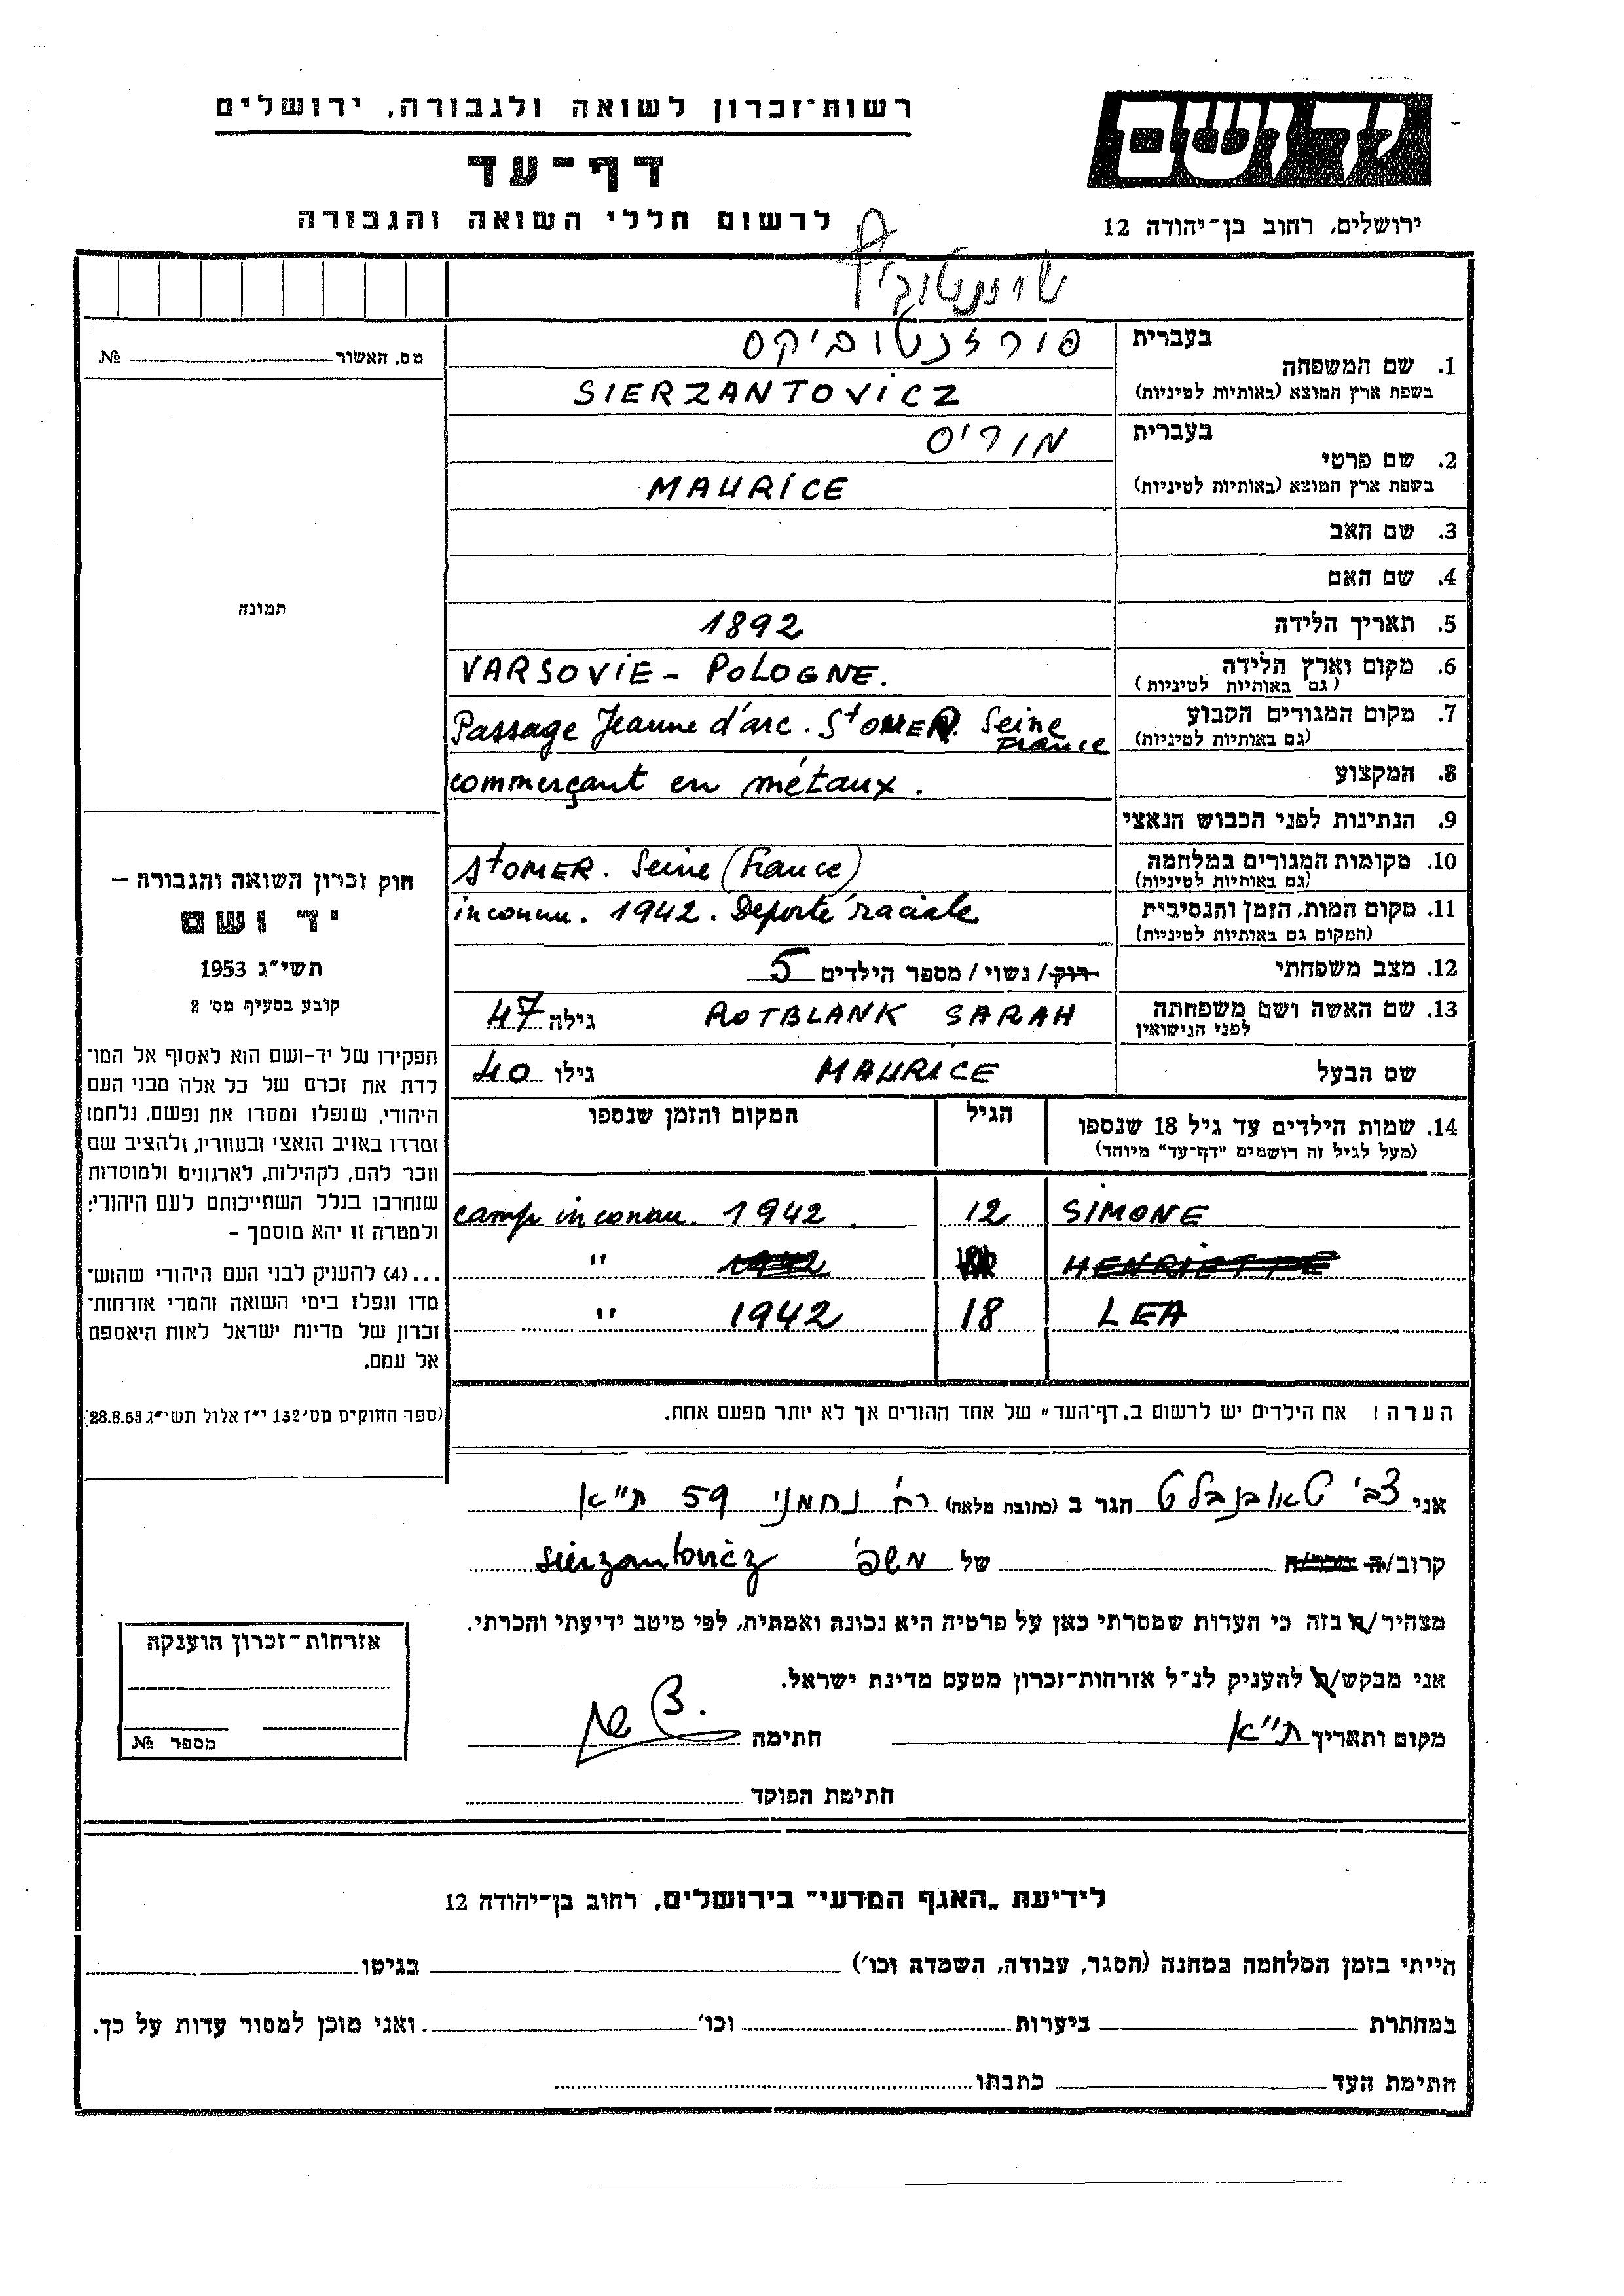 רשות־זכרון לשואה ולגבורה, ירושלים
דף־עד
לרשום חללי השואה והגבורה
יד ושם
ירושלים, רחוב בן־יהודה 12
מס. האשור № 
תמונה
בעברית
1. שם המשפחה
בשפת ארץ המוצא (באותיות לטיניות)
SIERZANTOVICZ
בעברית מוריס
2. שם פרטי
בשפת ארץ המוצא (באותיות לטיניות)
MAURICE
3. שם האב
4. שם האם
5. תאריך הלידה 1892
6. מקום וארץ הלידה
(גם באותיות לטיניות)
VARSOVIE - POLOGNE.
7. מקום המגורים הקבוע
(גם באותיות לטיניות)
Passage Jeanne d'arc. St OMER. Seine
France
8. המקצוע commerçant en métaux.
9. הנתינות לפני הכבוש הנאצי
10. מקומות המגורים במלחמה
(גם באותיות לטיניות)
St OMER. Seine (France)
11. מקום המות, הזמן והנסיבות
(המקום גם באותיות לטיניות)
inconnu. 1942. Deporté raciale
12. מצב משפחתי רוק/ נשוי/ מספר הילדים 5
13. שם האשה ושם משפחתה
לפני הנישואין
ROTBLANK SARAH גילה 47
שם הבעל MAURICE גילו 40
14. שמות הילדים עד גיל 18 שנספו הגיל המקום והזמן שנספו
(מעל לגיל זה רושמים "דף־עד" מיוחד)
SIMONE 12 camp inconnu. 1942.
HENRIETTE 1942 "
LEA 18 1942 "
הערה: את הילדים יש לרשום ב"דף־העד" של אחד ההורים אך לא יותר מפעם אחת.
חוק זכרון השואה והגבורה –
יד ושם
תשי"ג 1953
קובע בסעיף מס' 2
תפקידו של יד-ושם הוא לאסוף אל המו־
לדת את זכרם של כל אלה מבני העם
היהודי, שנפלו ומסרו את נפשם, נלחמו
ומרדו באויב הנאצי ובעוזריו, ולהציב שם
וזכר להם, לקהילות, לארגונים ולמוסדות
שנחרבו בגלל השתייכותם לעם היהודי;
ולמטרה זו יהא מוסמך –
...(4) להעניק לבני העם היהודי שהוש־
מדו ונפלו בימי השואה והמרי אזרחות־
זכרון של מדינת ישראל לאות היאספם
אל עמם.
(ספר החוקים מס' 132 י"ז אלול תשי"ג 28.8.53)
אני צבי טאובנבלט הגר ב (כתובת מלאה) רח' נחמני 59 ת"א
קרוב/ה מכר/ה של משפ' Sierzantovicz
מצהיר/ה בזה כי העדות שמסרתי כאן על פרטיה היא נכונה ואמתית, לפי מיטב ידיעתי והכרתי.
אני מבקש/ת להעניק לנ"ל אזרחות־זכרון מטעם מדינת ישראל.
מקום ותאריך ת"א חתימה
חתימת הפוקד
אזרחות־זכרון הוענקה
מספר №
לידיעת "האגף המדעי" בירושלים, רחוב בן־יהודה 12
הייתי בזמן המלחמה במחנה (הסגר, עבודה, השמדה וכו') בגיטו
במחתרת ביערות וכו' ואני מוכן למסור עדות על כך.
חתימת העד כתבתו